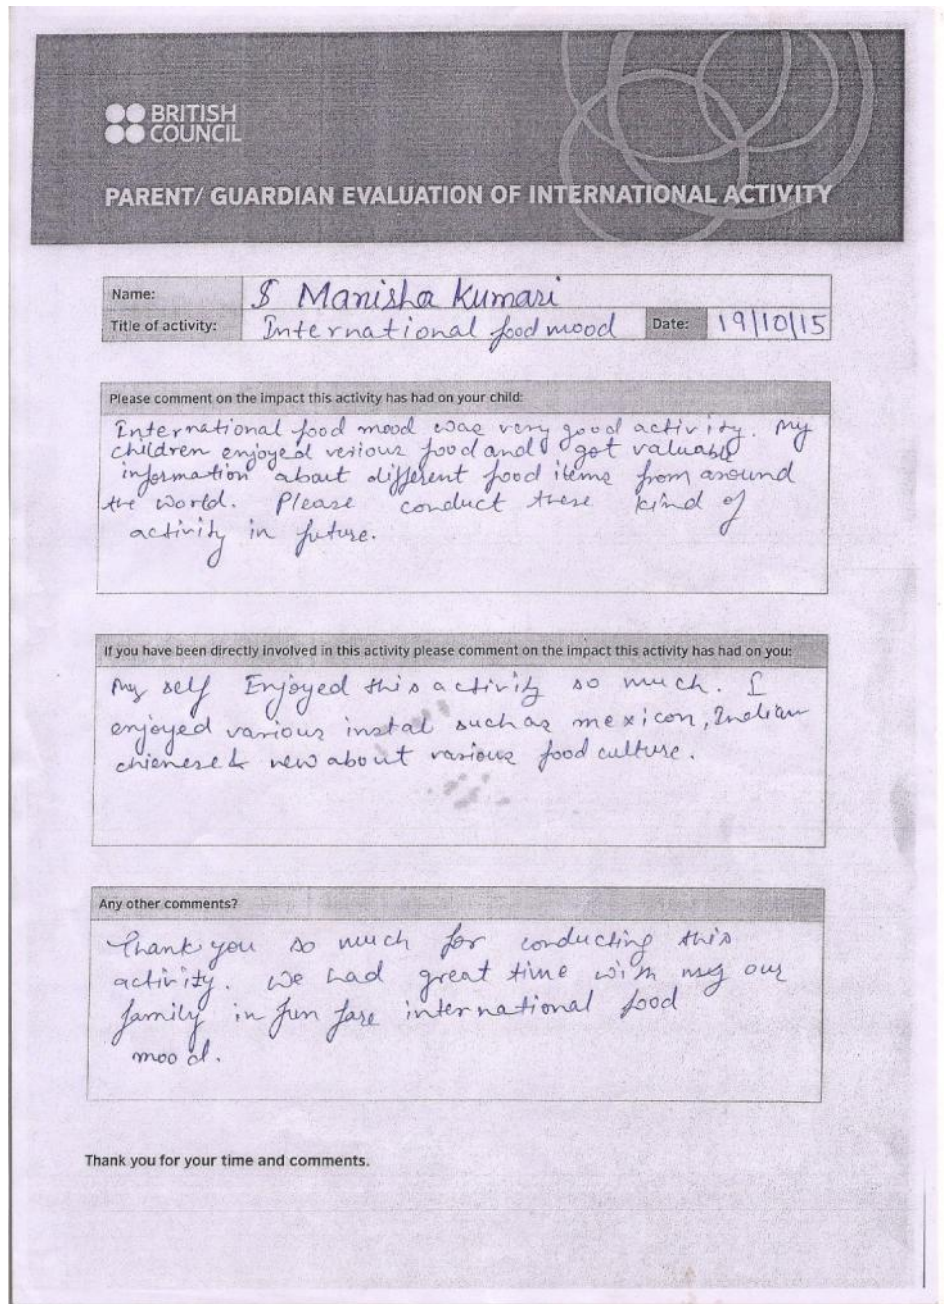 BRITISH
COUNCIL
PARENT/ GUARDIAN EVALUATION OF INTERNATIONAL ACTIVITY
Name: S Manisha Kumari
Title of activity: International food mood Date: 19/10/15
Please comment on the impact this activity has had on your child:
International food mood was very good activity. My
children enjoyed verious food and got valuable
information about different food items from around
the world. Please conduct these kind of
activity in future.
If you have been directly involved in this activity please comment on the impact this activity has had on you:
My self Enjoyed this activity so much. I
enjoyed various instal such as mexicon, Indian
chienese & new about various food culture.
Any other comments?
Thank you so much for conducting this
activity. We had great time with my our
family in fun fare international food
mood.
Thank you for your time and comments.